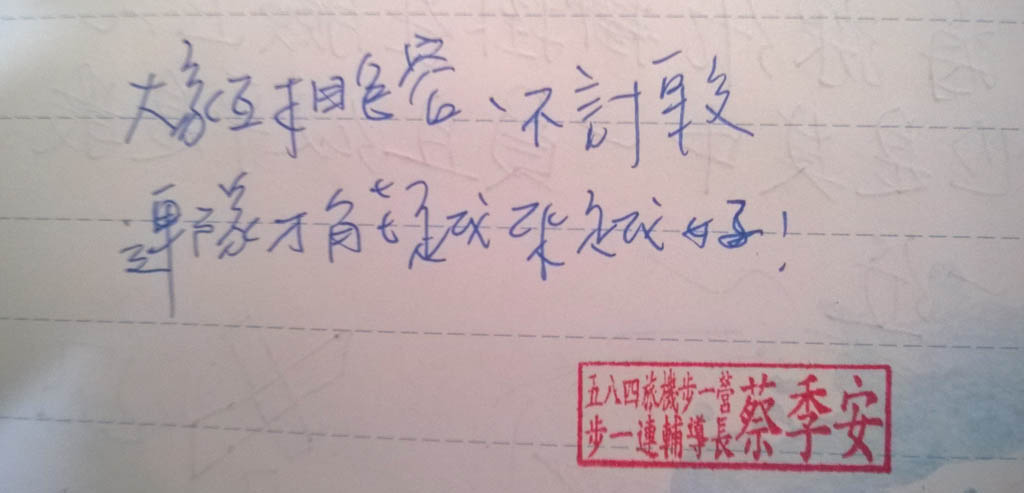 大家互相包容、不計較
連隊才能越來越好！
五八四旅機步一營
步一連輔導長蔡季安